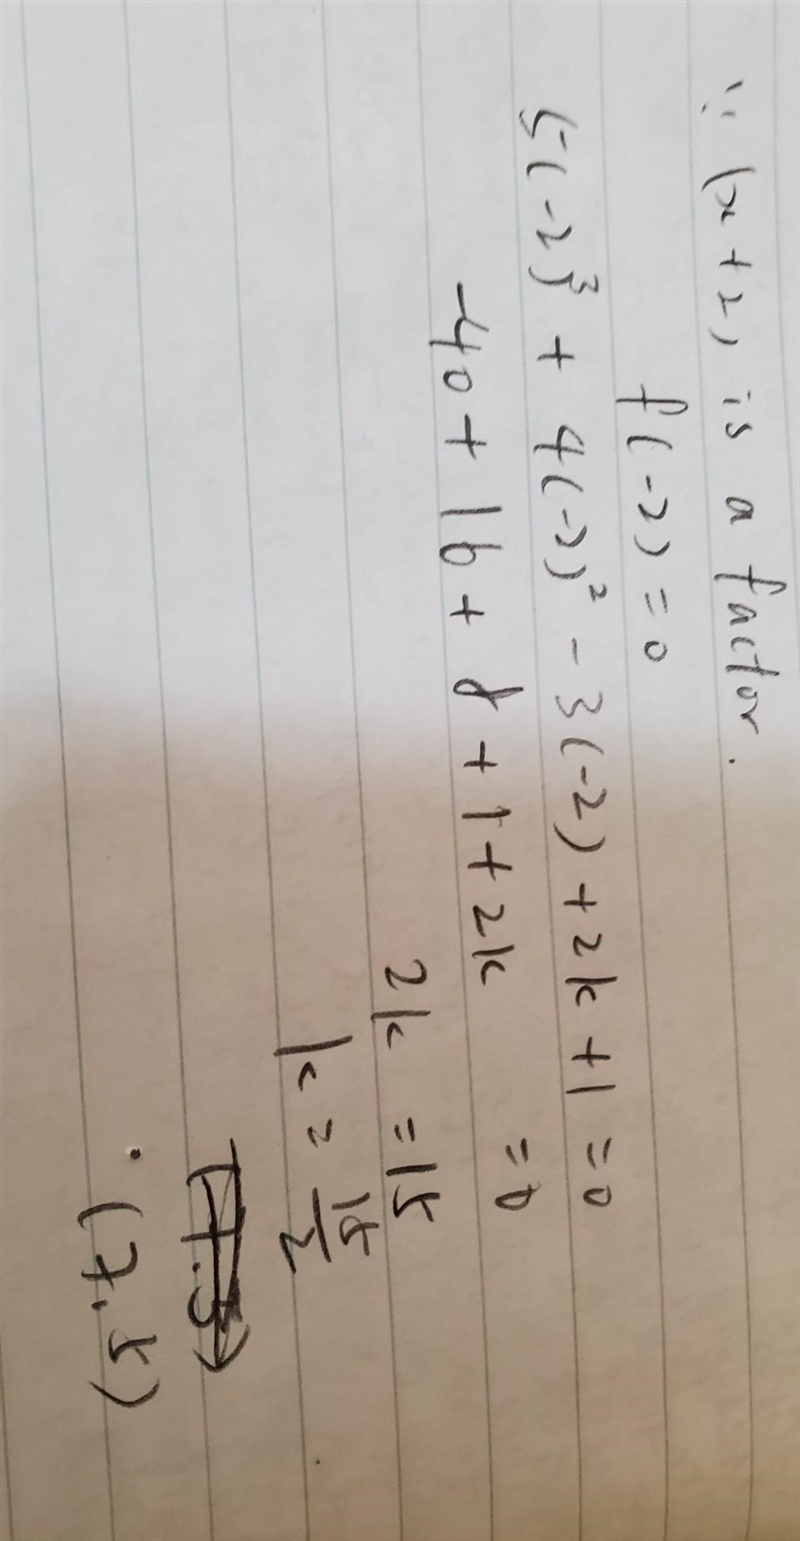 ∵ (x+2) is a factor.
f(-2)=0
5(-2)³ + 4(-2)² - 3(-2) + 2k + 1 = 0
-40 + 16 + 8 + 1 + 2k = 0
2k = 15
k = 15/2
(7.5)